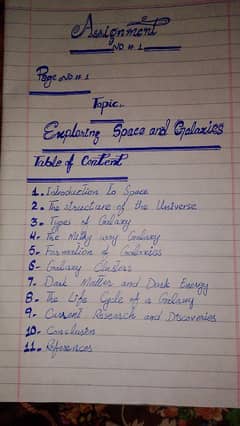 Assignment
NO # 1
Page NO # 1
Topic..
Exploring Space and Galaxies
Table of Content
1. Introduction to Space
2. The structure of the Universe
3. Types of Galaxy
4. The Milky way Galaxy
5. Formation of Galaxies
6. Galaxy Clusters
7. Dark Matter and Dark Energy
8. The Life Cycle of a Galaxy
9. Current Research and Discoveries
10. Conclusion
11. References